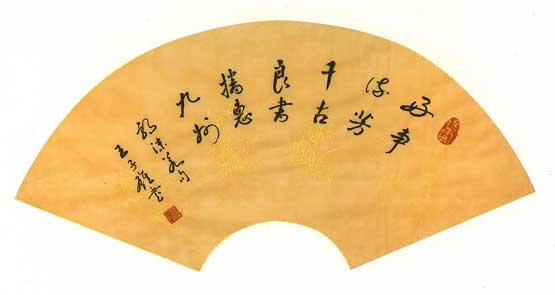 好事
流芳
千古
良書
播惠
九州
郭沫若句
王子書